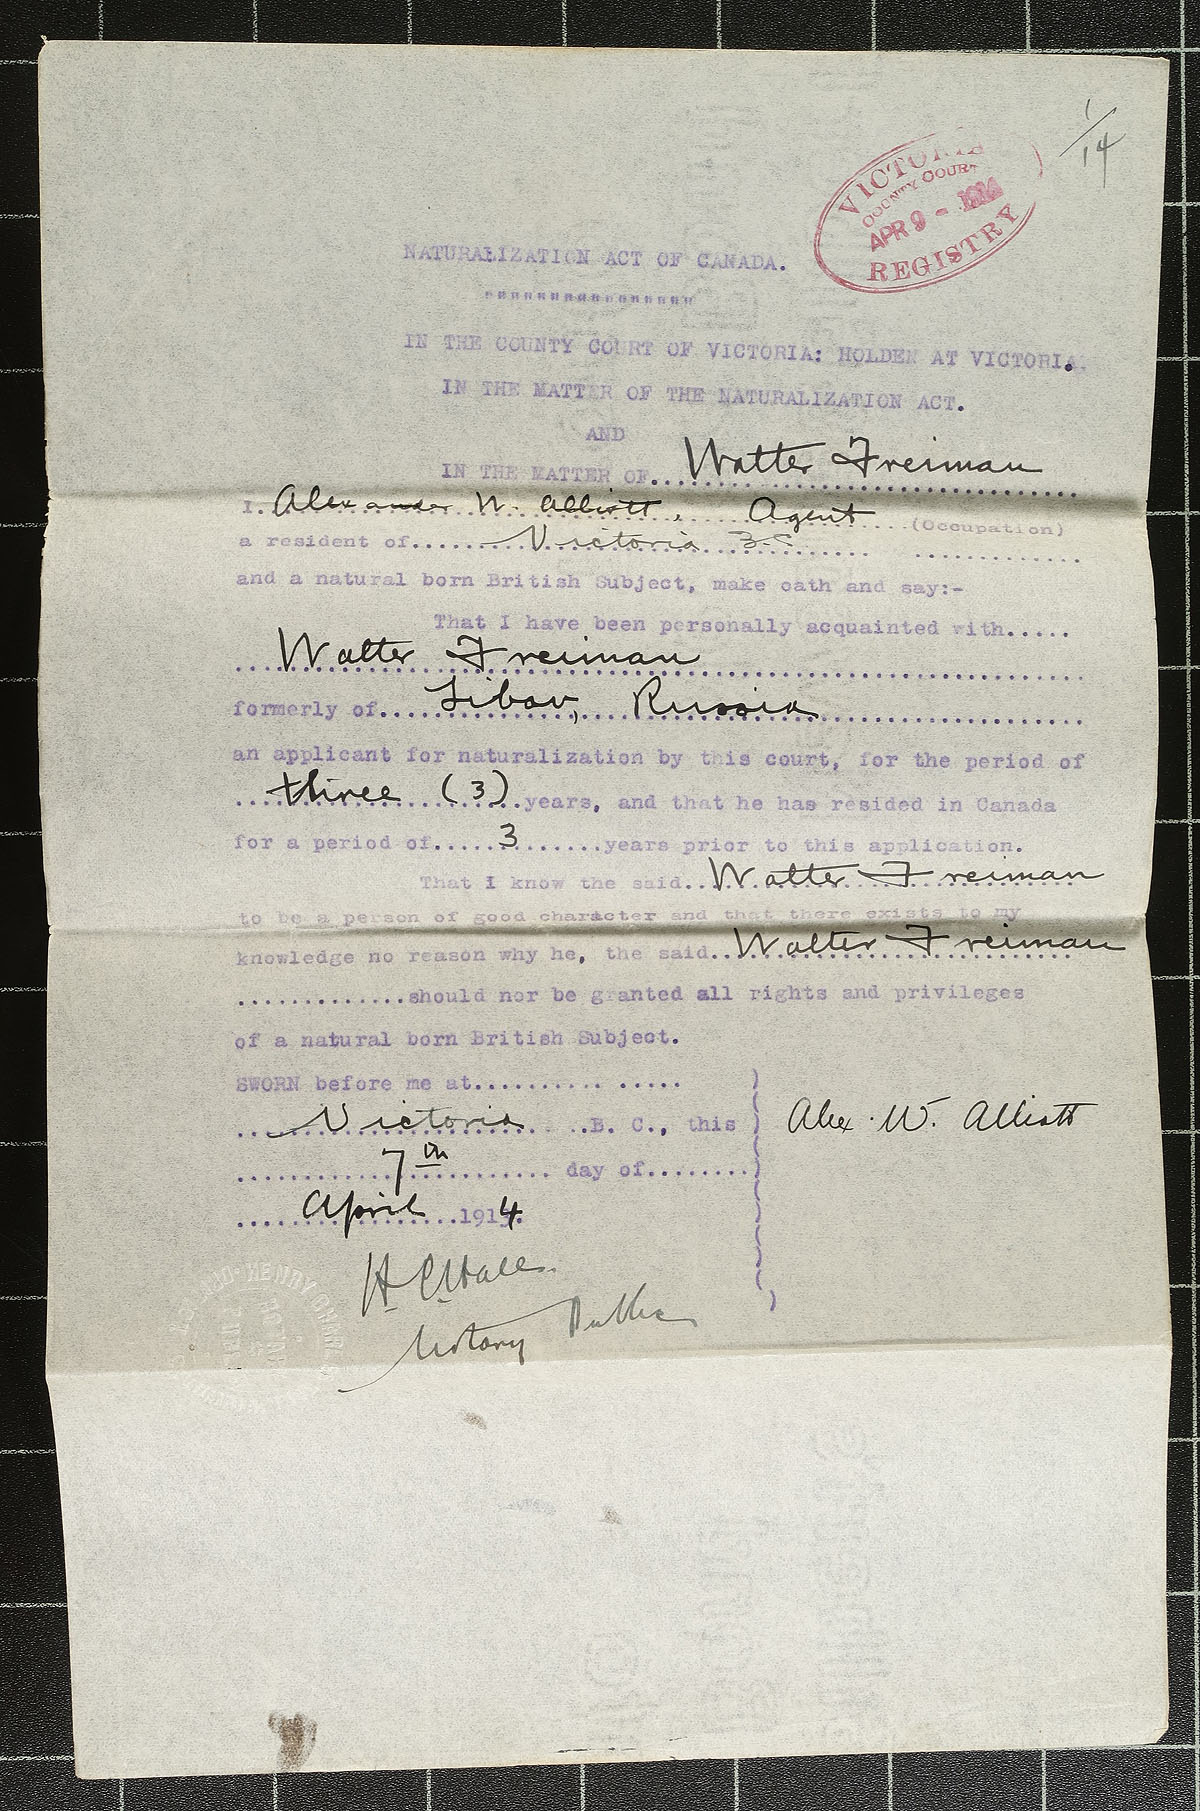 1/14
VICTORIA
COUNTY COURT
APR 9 - 1914
REGISTRY
NATURALIZATION ACT OF CANADA.
"""""""""""""""""
IN THE COUNTY COURT OF VICTORIA: HOLDEN AT VICTORIA.
IN THE MATTER OF THE NATURALIZATION ACT.
AND
IN THE MATTER OF.. Walter Freiman
I. Alexander W. Alliott, Agent (Occupation)
a resident of..... Victoria B.C.
and a natural born British Subject, make oath and say:-
That I have been personally acquainted with.....
Walter Freiman
formerly of.... Libav, Russia
an applicant for naturalization by this court, for the period of
three (3) years, and that he has resided in Canada
for a period of.....3.......years prior to this application.
That I know the said.. Walter Freiman
to be a person of good character and that there exists to my
knowledge no reason why he, the said.. Walter Freiman
.............should nor be granted all rights and privileges
of a natural born British Subject.
SWORN before me at.......... .....
Victoria B. C., this
7th day of.........
April 1914.
Alex. W. Alliott
H C Hall
Notary Public
HENRY